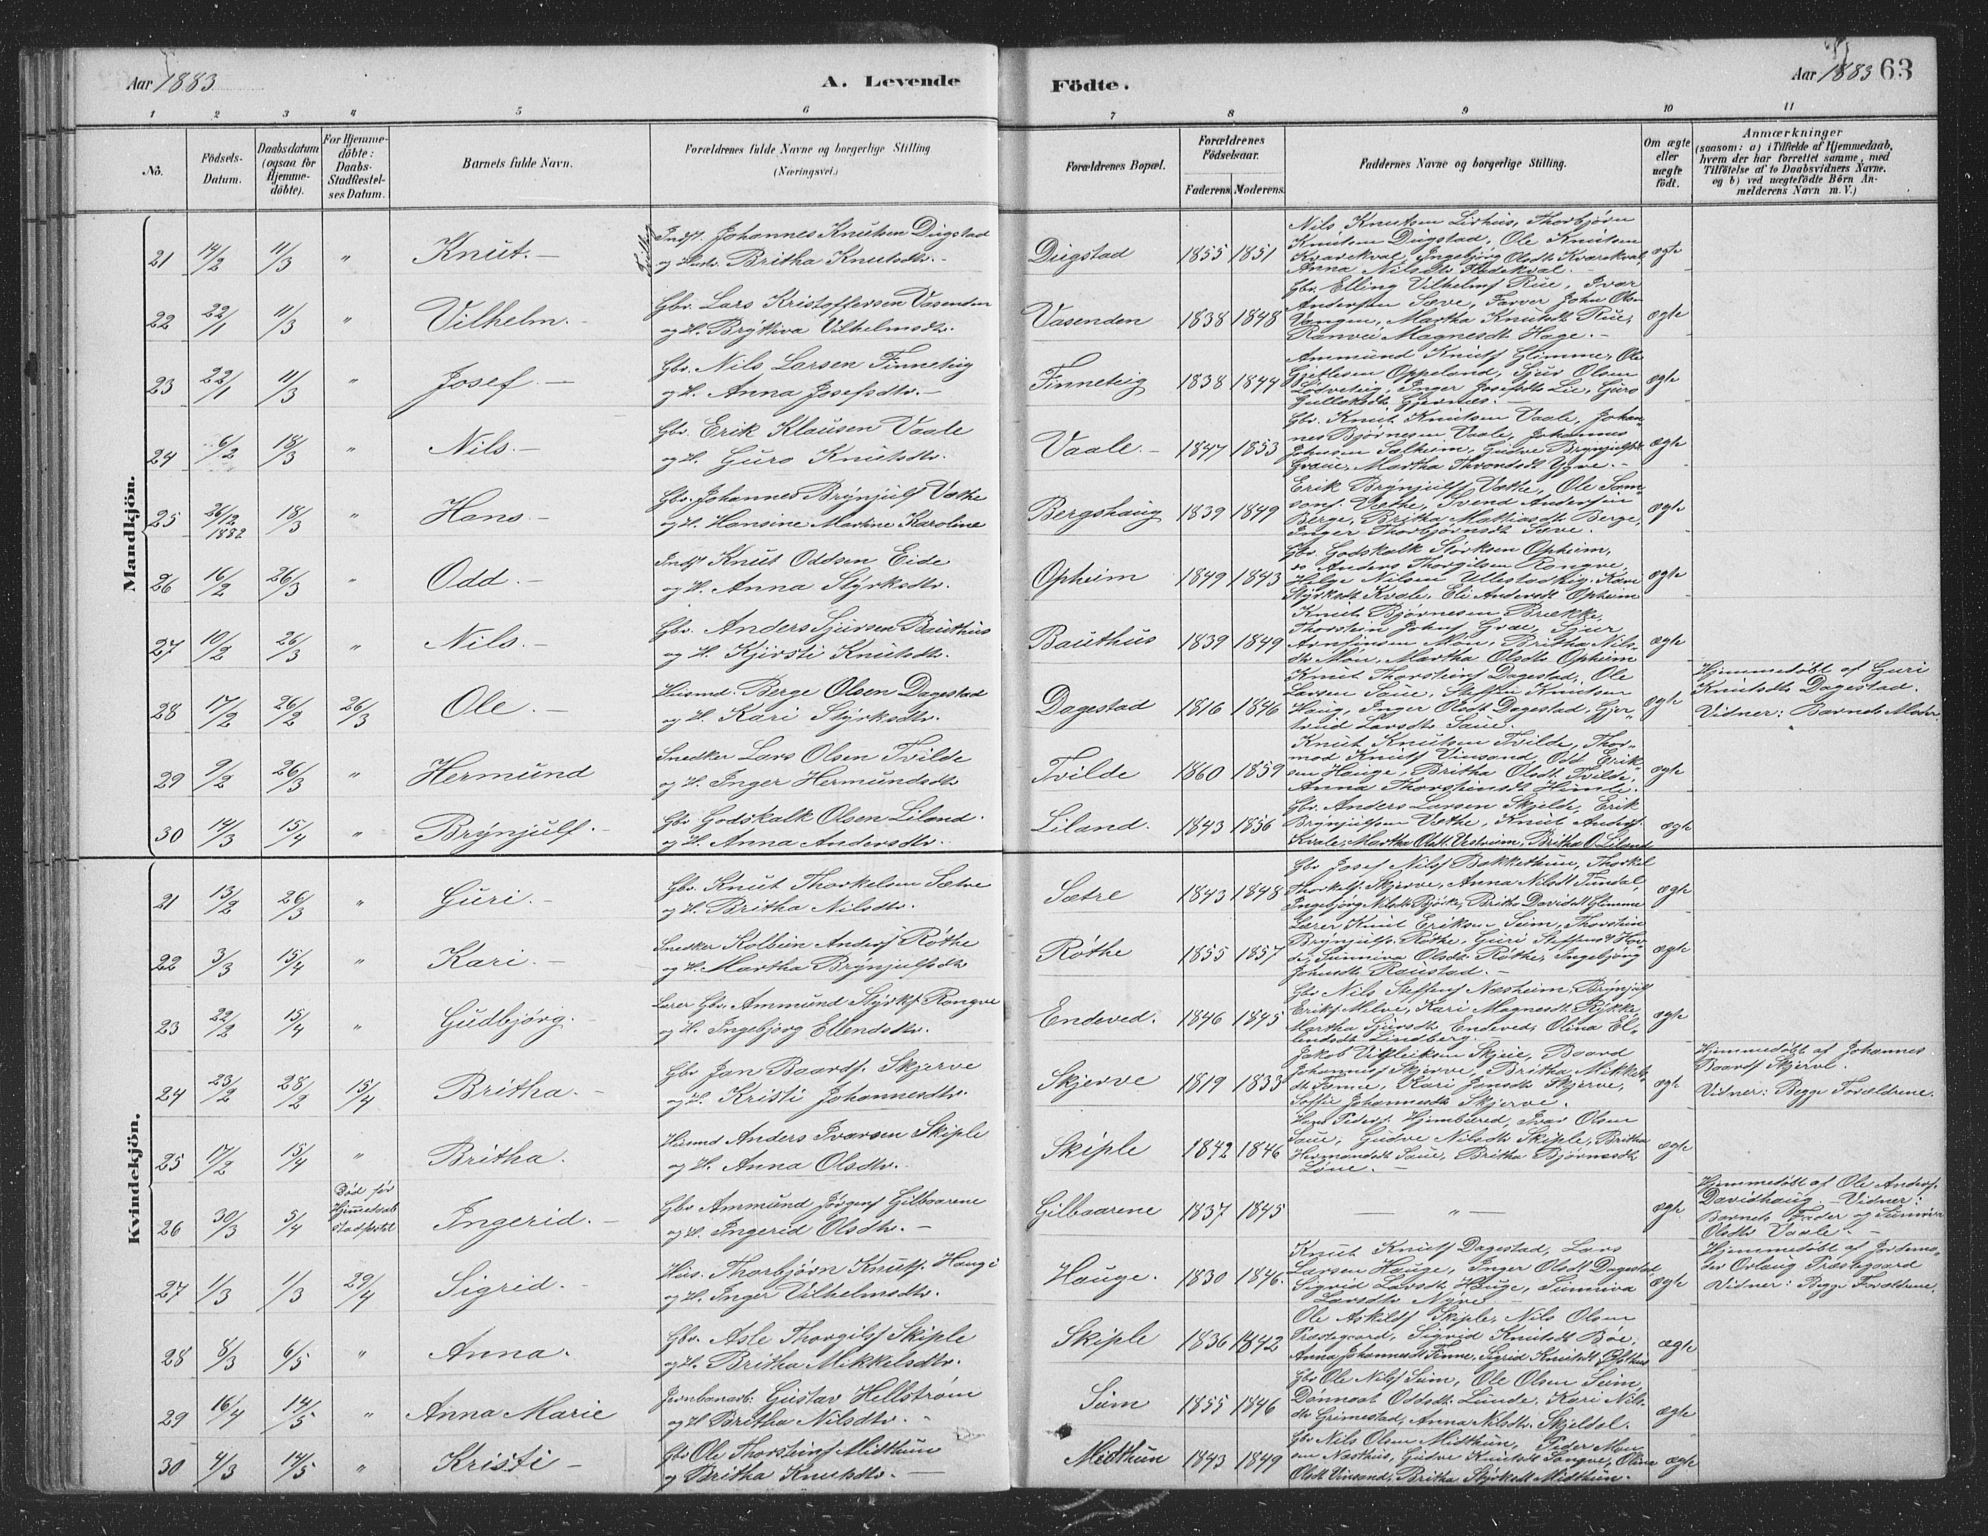 Aar 1883
A. Levende Födte.
Aar 1883 63
1 2 3 4 5 6 7 8 9 10 11
No.
Födsels-Datum.
Daabsdatum (ogsaa for Hjemme-döbte).
For Hjemme-döbte: Daabs-Stadfæstel-ses Datum.
Barnets fulde Navn.
Forældrenes fulde Navne og borgerlige Stilling
(Næringsvei.)
Forældrenes Bopæl.
Forældrenes Födselsaar.
Faderens Moderens
Faddernes Navne og borgerlige Stilling.
Om ægte eller uægte födt.
Anmærkninger
(saasom: a) i Tilfælde af Hjemmedaab,
hvem der har forrettet samme, med
Tilföielse af to Daabsvidners Navne.
og b) ved uægtefödte Börn An-
melderens Navn m. V.)
Mandkjön.
21 14/2 11/3 " Knut. – Indst. Johannes Knutsen Dugstad
og Hustr. Britha Knutsdtr. –
Dugstad 1855 1851 Nils Knutsen Lirhus, Thorbjørn
Knutsen Dugstad, Ole Knutsen
Kvarekval, Ingebjørg Olsdt. Kvarekval,
Anna Nilsdtr. Flatekval. – ægte
22 22/1 11/3 " Vilhelm. – Gbr. Lars Kristoffersen Vasenden
og H. Bryttiva Vilhelmsdtr.
Vasenden 1838 1848 Gbr. Elling Vilhelms. Rue, Ivar
Andersen Sæve, Farver John Ols.
Vangen, Martha Knutsdt. Rue,
Ranvei Magnesdt. Hage. – ægte
23 22/1 11/3 " Josef. – Gbr. Nils Larsen Finneteig
og H. Anna Josefsdtr. –
Finneteig 1838 1844 Ammund Knuts. Glimme, Ole
Gjetlesen Oppeland, Sjur Olsen
Lødveteig, Inger Josefsdt. Lie, Guro
Gulleksdt. Gjernæs. – ægte
24 6/2 18/3 " Nils. – Gbr. Erik Klausen Vaale
og H. Guro Knutsdtr.
Vaale. – 1847 1853 Gbr. Knut Knutsen Vaale, Johan-
nes Bjørnesen Vaale, Johannes
Johnsen Sælheim, Gudve Brynjulfsdt.
Graue, Martha Throndsdt. Gjerve. – ægte
25 26/12 1882 18/3 " Hans. – Gbr. Johannes Brynjulfs. Væthe
og H. Hansine Martine Karoline
Bergshaug 1839 1849 Erik Brynjulfs. Væthe, Ole Sam-
sons. Væthe, Svend Andersen
Berge, Britha Mathiasdt. Berge,
Inger Thorbjørnsdt. Sæve. – ægte
26 16/2 26/3 " Odd. – Indst. Knut Oddsen Eide
og H. Anna Styrksdtr.
Opheim 1849 1843 Gbr. Godskalk Størksen Opheim,
do Anders Thorgilsen Rongve,
Helge Nilsen Ullestadkig, Kari
Styrksdt. Kvale, Eli Andersdt. Opheim ægte
27 10/2 26/3 " Nils. – Gbr. Anders Sjursen Bauthus
og H. Kjersti Knutsdtr.
Bauthus 1839 1849 Knut Bjørnesen Brække,
Thorstein Johns. Græe, Sjur
Arnfinsen Møn, Britha Nils-
dtr. Møn, Martha Olsdt. Opheim ægte
28 17/2 26/2 26/3 Ole. – Husmd. Berge Olsen Dagestad
og H. Kari Styrksdtr.
Dagestad 1816 1846 Knut Thorsteins. Dagestad, Ole
Larsen Saue, Steffen Knutsen
Haug, Inger Olsdt. Dagestad, Gjer-
trud Larsdt. Saue. ægte
Hjemmedøbt af Guri
Knutsdtr. Dagestad.
Vidner: Barnets Moder
29 9/2 26/3 " Hermund Snedker Lars Olsen Tvilde
og H. Inger Hermundsdtr.
Tvilde 1860 1859 Knut Knutsen Tvilde, Thor-
mod Knuts. Vinsand, Odd Erik-
sen Hauge, Britha Olsdt. Tvilde,
Anna Thorsteinsdt. Humle. ægte
30 14/3 15/4 " Brynjulf. – Gbr. Godskalk Olsen Liland.
og H. Anna Andersdtr.
Liland. 1843 1856 Gbr. Anders Larsen Skjelde, Erik
Brynjulfsen Væthe, Knut Anders.
Kvale, Martha Olsdt. Væsheim, Britha O. Liland ægte
Kvindekjön.
21 13/2 26/3 " Guri. – Gbr. Knut Thorkelsen Sætre
og H. Britha Nilsdtr.
Sætre 1843 1848 Gbr. Josef Nils. Bakkethun, Thorkel
Thorkels. Skjerve, Anna Nilsdt. Tundal,
Ingebjørg Nilsdt. Bjørke, Britha Davidsdt. Glimme ægte
22 3/3 15/4 " Kari. – Snedker Kolbein Anders. Røthe
og H. Martha Brynjulfsdtr.
Røthe 1855 1857 Lærer Knut Eriksen Seim, Thorstein
Brynjulfs. Røthe, Guri Steffensdt. Hov-
de, Sunniva Olsdt. Røthe, Ingebjørg
Johnsdt. Raustad. – ægte
23 22/2 15/4 " Gudbjørg. Lærer Gbr. Ammund Styrks. Rongve
og H. Ingebjørg Ellendsdtr.
Endeved. 1846 1845 Gbr. Nils Steffens. Næsheim, Brynjulf
Eriks. Melve, Kari Magnesdt. Rykke,
Martha Sjursdt. Endeved, Olina El-
lendsdt. Lindberg. ægte
24 23/2 28/2 15/4 Britha. – Gbr. Jan Baards. Skjerve
og H. Kristi Johannesdtr.
Skjerve 1819 1833 Jakob Vikleiksen Skjeie, Baard
Johannes. Skjerve, Britha Mikkels-
dt. Finne, Kari Jansdt. Skjerve,
Soffie Johannesdt. Skjerve. ægte
Hjemmedøbt af Johannes
Baards. Skjerve.
Vidner: Begge Forældrene.
25 17/2 15/4 " Britha. Husmd. Anders Ivarsen Skiple
og H. Anna Olsdtr.
Skiple 1842 1846 Hans Peders. Hjembered, Ivar Olsen
Saue, Gudve Nilsdt. Skiple, Britha
Hermundsdt. Saue, Britha Bjørnesdt.
Løne. – ægte
26 30/3 5/4 Død før Hjemmedaab Stadfæstet Ingerid. – Gbr. Ammund Jørgens. Gilbaarene
og H. Ingerid Olsdtr. –
Gilbaarene 1837 1845 — " — ægte
Hjemmedøbt af Ole Anders.
Davidhaug – Vidner:
Barnets Fader og Sunniva
Olsdtr. Vaale –
27 1/3 1/3 29/4 Sigrid. – Hus. Thorbjørn Knuts. Hauge
og H. Inger Vilhelmsdtr.
Hauge. 1830 1846. Knut Knuts. Dagestad, Lars
Larsen Hauge, Inger Olsdt. Dagestad,
Sigrid Larsdt. Hauge, Sunniva
Larsdtr. Nyre – ægte
Hjemmedøbt af Jordemo-
der Præstegaard
Vidner: Begge Forældrene.
28 8/3 6/5 " Anna. Gbr. Asle Thorgils. Skiple
og H. Britha Mikkelsdtr.
Skiple 1836 1842 Ole Askilds. Skiple, Nils Olsen
Præstegaard, Sigrid Knutsdt. Bøe,
Anna Johannesdt. Finne, Sigrid Knutsdt. Ofthus ægte
29 16/4 14/5 " Anna Marie Jernbanearb. Gustav Hellstrøm
og H. Britha Nilsdtr.
Sūm 1855 1846 Gbr. Ole Nils. Seim, Ole Olsen Seim,
Dønnaat Oddsdt. Lunde, Kari Nils-
dtr. Grimestad, Anna Nilsdtr. Skjeldal. ægte
30 4/3 14/5 " Kristi – Gbr. Ole Thorsteins. Midthun
og Britha Knutsdtr. –
Midthun 1843 1849 Gbr. Nils Olsen Midthun, Peder Mon-
sen Næsthus, Gudve Knutsdt. Tongve, Olina
Olsdt. Vinsand, Britha Styrksdt. Midthun. ægte